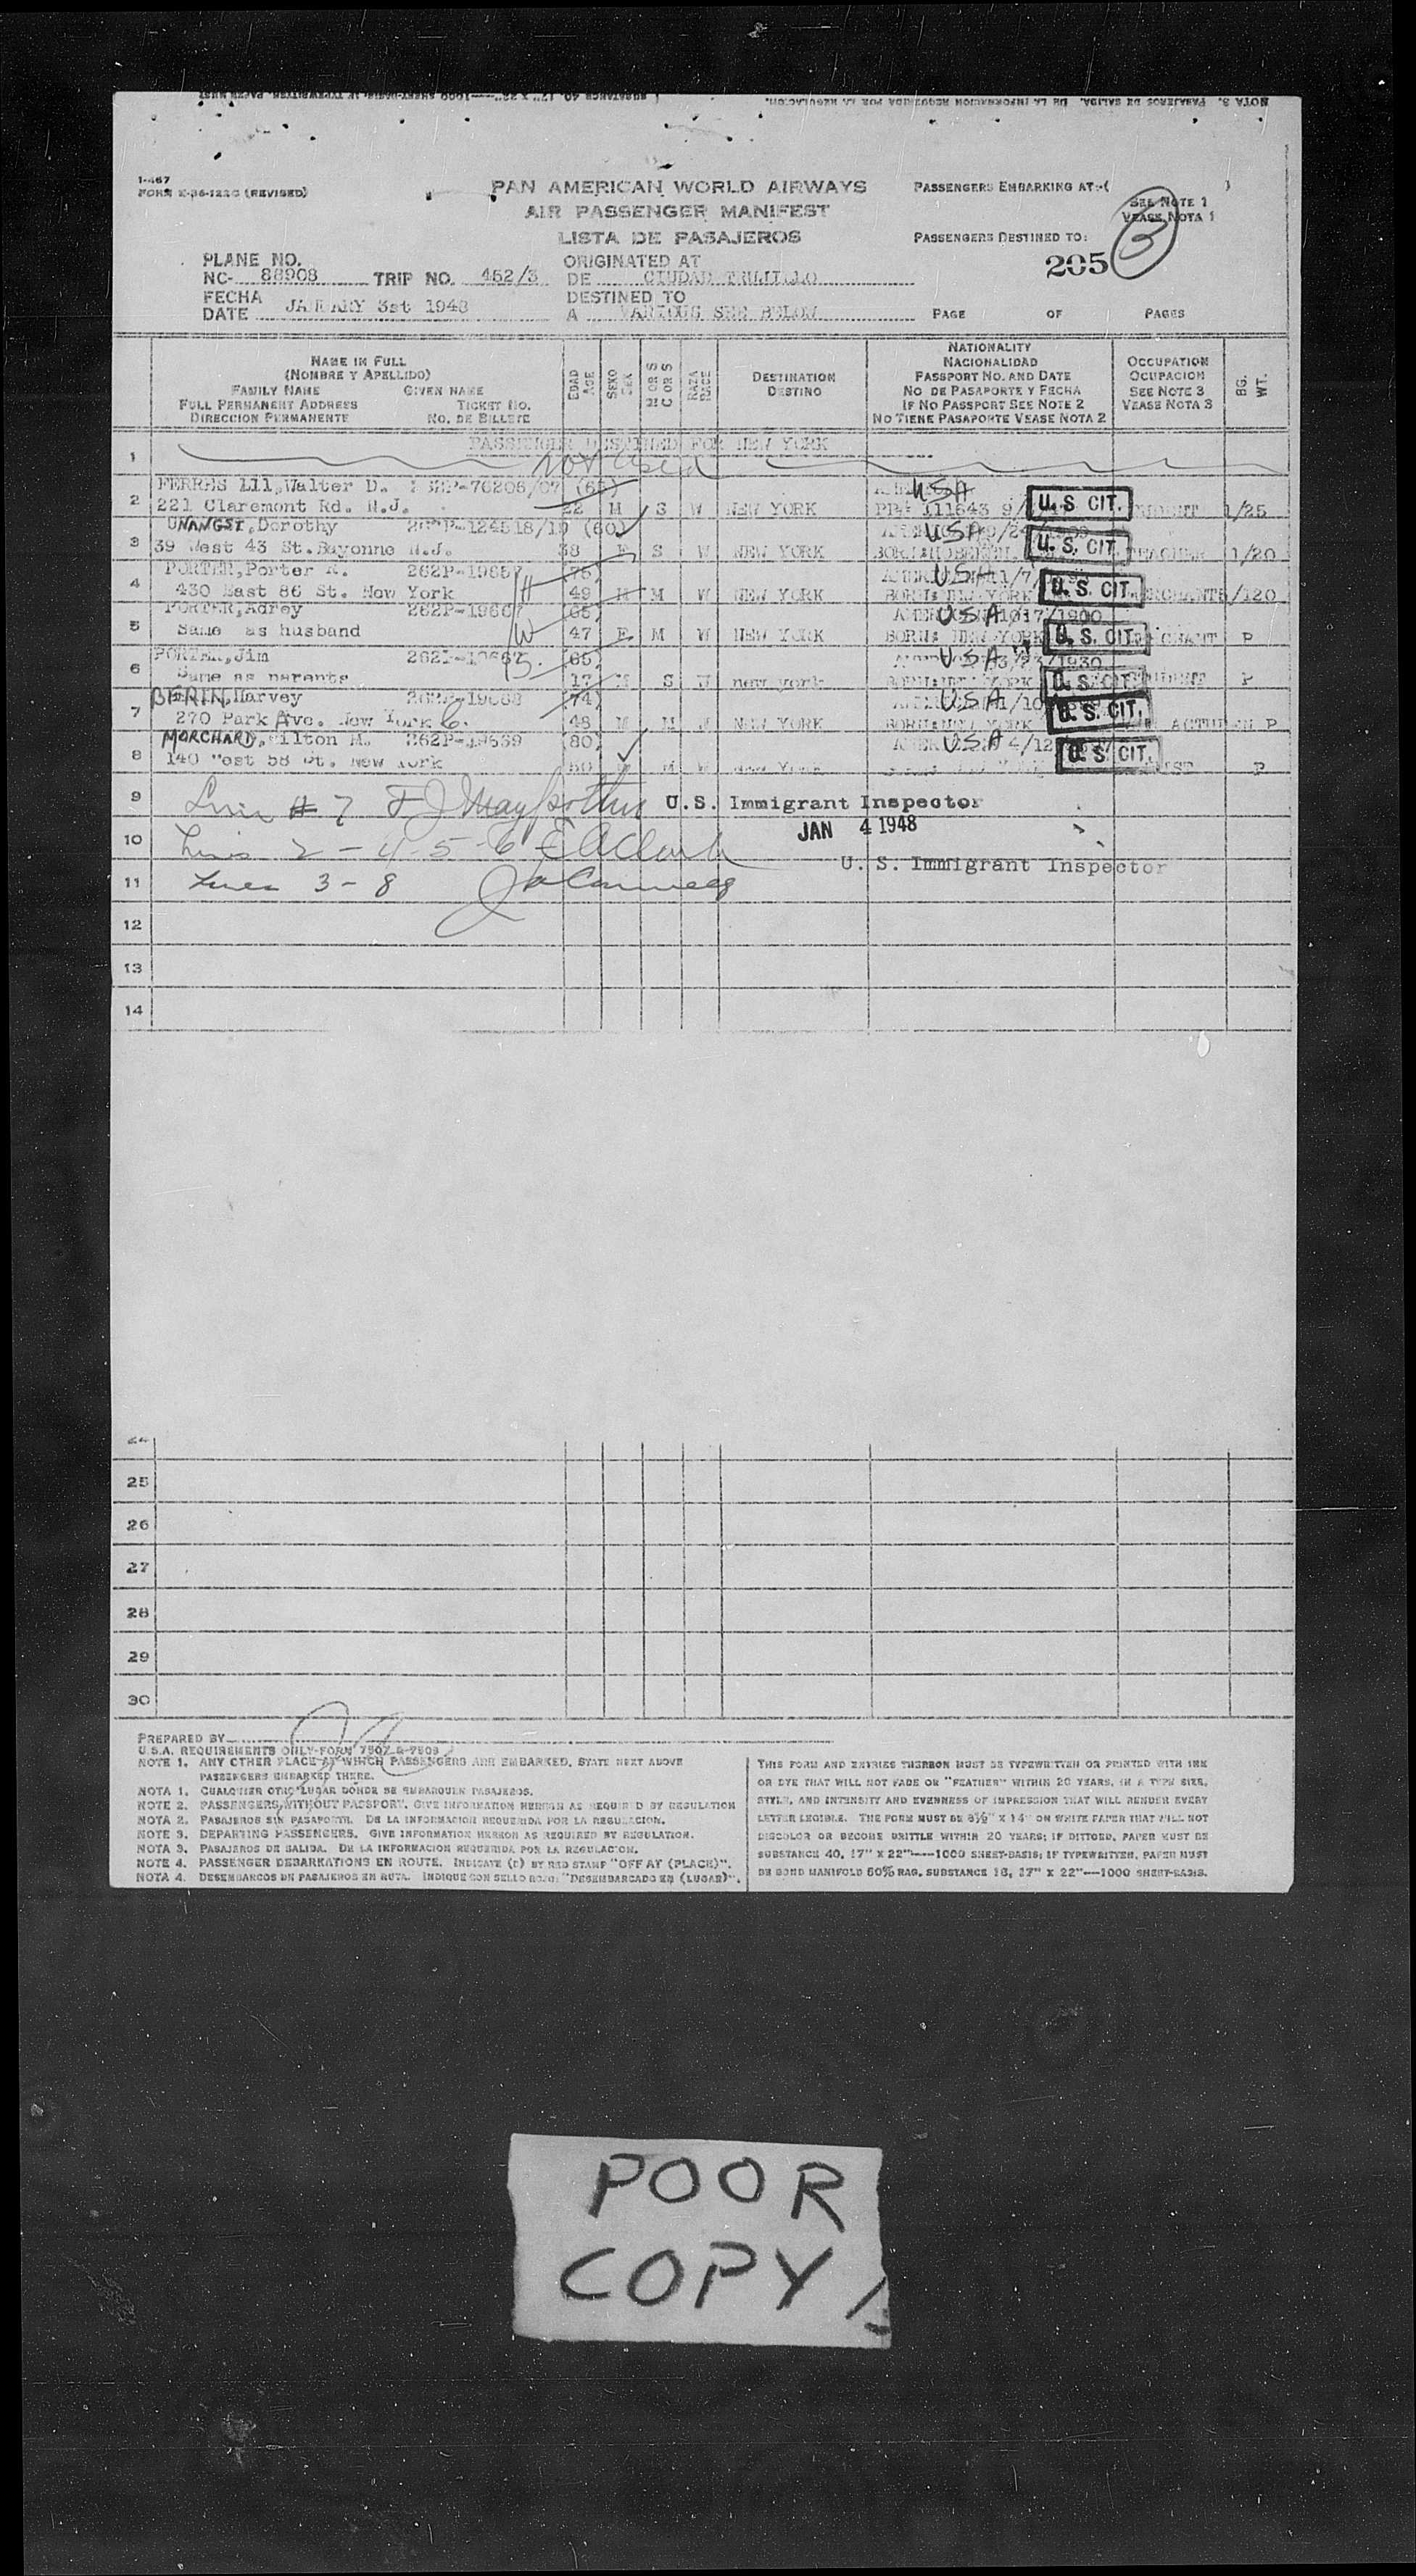 1-467
FORM E-36-122C (REVISED)
PAN AMERICAN WORLD AIRWAYS
AIR PASSENGER MANIFEST
LISTA DE PASAJEROS
PASSENGERS EMBARKING AT:-( )
SEE NOTE 1
VEASE NOTA 1
PASSENGERS DESTINED TO:
205 3
PLANE NO.
NC- 88908 TRIP NO. 452/3
ORIGINATED AT
DE CIUDAD TRUJILLO
FECHA
DATE JANUARY 3st 1948
DESTINED TO
A VARIOUS SEE BELOW
PAGE OF PAGES
NAME IN FULL
(NOMBRE Y APELLIDO)
FAMILY NAME GIVEN NAME
FULL PERMANENT ADDRESS TICKET NO.
DIRECCION PERMANENTE NO. DE BILLETE
EDAD AGE
SEXO SEX
M OR S
C OR S
RAZA RACE
DESTINATION
DESTINO
NATIONALITY
NACIONALIDAD
PASSPORT NO. AND DATE
NO DE PASAPORTE Y FECHA
IF NO PASSPORT SEE NOTE 2
NO TIENE PASAPORTE VEASE NOTA 2
OCCUPATION
OCUPACION
SEE NOTE 3
VEASE NOTA 3
BG. WT.
PASSENGER DESTINED FOR NEW YORK
1 not used
FERRES III, Walter D. 76206/07 (65) USA
2 221 Claremont Rd. N.J. 22 M S W NEW YORK 111643 U.S. CIT. 1/25
UNANGST, Dorothy 124518/19 (60) USA
3 39 West 43 St. Bayonne N.J. 38 F S W NEW YORK U.S. CIT. TEACHER 1/20
PORTER, Porter R. 262P-19657 (75) USA
4 430 East 86 St. New York H 49 M M W NEW YORK BORN: NEW YORK U.S. CIT. /120
PORTER, Adrey 262P-1966 (65) USA
5 Same as husband W 47 F M W NEW YORK BORN: NEW YORK U.S. CIT. P
PORTER, Jim (65) USA 3/23/1930
6 Same as parents S. 17 M S W new york U.S. CIT. STUDENT P
BERIN, Harvey 262P-19668 (74) USA
7 270 Park Ave. New York C. 48 M M W NEW YORK BORN: NEW YORK U.S. CIT. P
MORCHARD, Milton M. 262P-19639 (80) USA 4/12
8 140 West 58 St. New York 50 M W NEW YORK U.S. CIT. P
9 Line # 7 U.S. Immigrant Inspector
JAN 4 1948
10 Lines 2 - 4-5-6 E A Clark
U. S. Immigrant Inspector
11 Lines 3 - 8
12
13
14
25
26
27
28
29
30
PREPARED BY
U.S.A. REQUIREMENTS ONLY-FORM 7507 & 7509
NOTE 1. ANY OTHER PLACE AT WHICH PASSENGERS ARE EMBARKED, STATE NEXT ABOVE
PASSENGERS EMBARKED THERE.
NOTA 1. CUALQUIER OTRO LUGAR DONDE SE EMBARQUEN PASAJEROS.
NOTE 2. PASSENGERS WITHOUT PASSPORT. GIVE INFORMATION HEREON AS REQUIRED BY REGULATION
NOTA 2. PASAJEROS SIN PASAPORTE. DE LA INFORMACION REQUERIDA POR LA REGULACION.
NOTE 3. DEPARTING PASSENGERS. GIVE INFORMATION HEREON AS REQUIRED BY REGULATION.
NOTA 3. PASAJEROS DE SALIDA. DE LA INFORMACION REQUERIDA POR LA REGULACION.
NOTE 4. PASSENGER DEBARKATIONS EN ROUTE. INDICATE (C) BY RED STAMP "OFF AT (PLACE)".
NOTA 4. DESEMBARCOS DE PASAJEROS EN RUTA. INDIQUE CON SELLO ROJO: "DESEMBARCADO EN (LUGAR)".
THIS FORM AND ENTRIES THEREON MUST BE TYPEWRITTEN OR PRINTED WITH INK
OR DYE THAT WILL NOT FADE OR "FEATHER" WITHIN 20 YEARS, IN A TYPE SIZE,
STYLE, AND INTENSITY AND EVENNESS OF IMPRESSION THAT WILL RENDER EVERY
LETTER LEGIBLE. THE FORM MUST BE 8½" X 14" ON WHITE PAPER THAT WILL NOT
DISCOLOR OR BECOME BRITTLE WITHIN 20 YEARS; IF DITTOED, PAPER MUST BE
SUBSTANCE 40, 17" X 22"---1000 SHEET-BASIS; IF TYPEWRITTEN, PAPER MUST
BE BOND MANIFOLD 50% RAG, SUBSTANCE 16, 17" X 22"---1000 SHEET-BASIS.
POOR
COPY